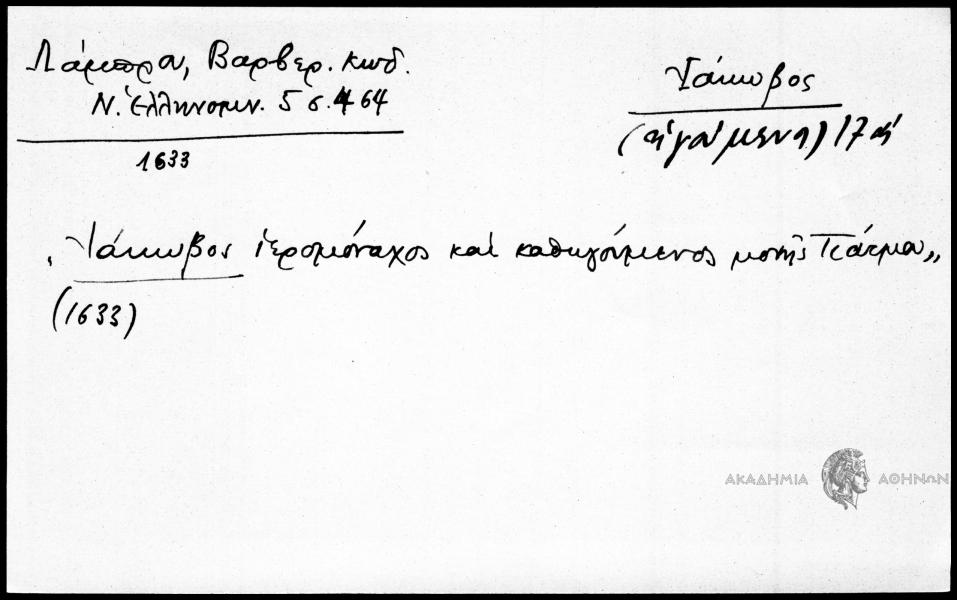 Λάμπρου, Βαρβερ. κωδ.
Ν. Ἑλληνομν. 5 σ. 464
1633
Ἰάκωβος
(ἡγούμενος) 17
„Ἰάκωβος ἱερομόναχος καὶ καθηγούμενος μονῆς Πάτμου„
(1633)
ΑΚΑΔΗΜΙΑ ΑΘΗΝΩΝ